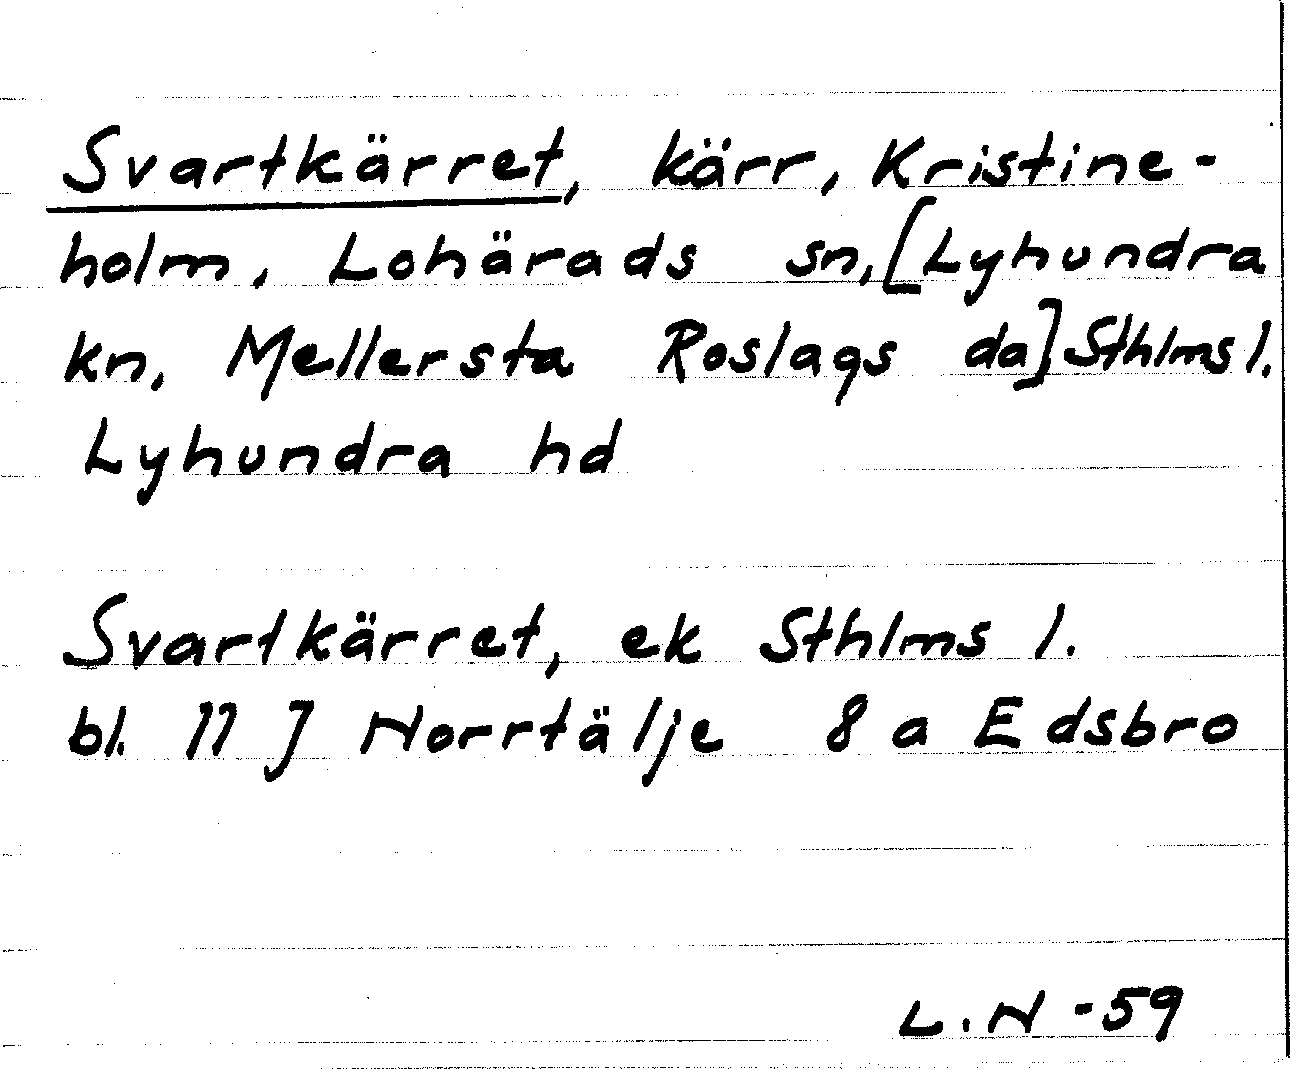 Svartkärret, kärr, Kristine-
holm, Lohärads sn, [Lyhundra
kn, Mellersta Roslags da] Sthlms l.
Lyhundra hd
Svartkärret, ek Sthlms l.
bl. 11 J Norrtälje 8 a Edsbro
L.N -59